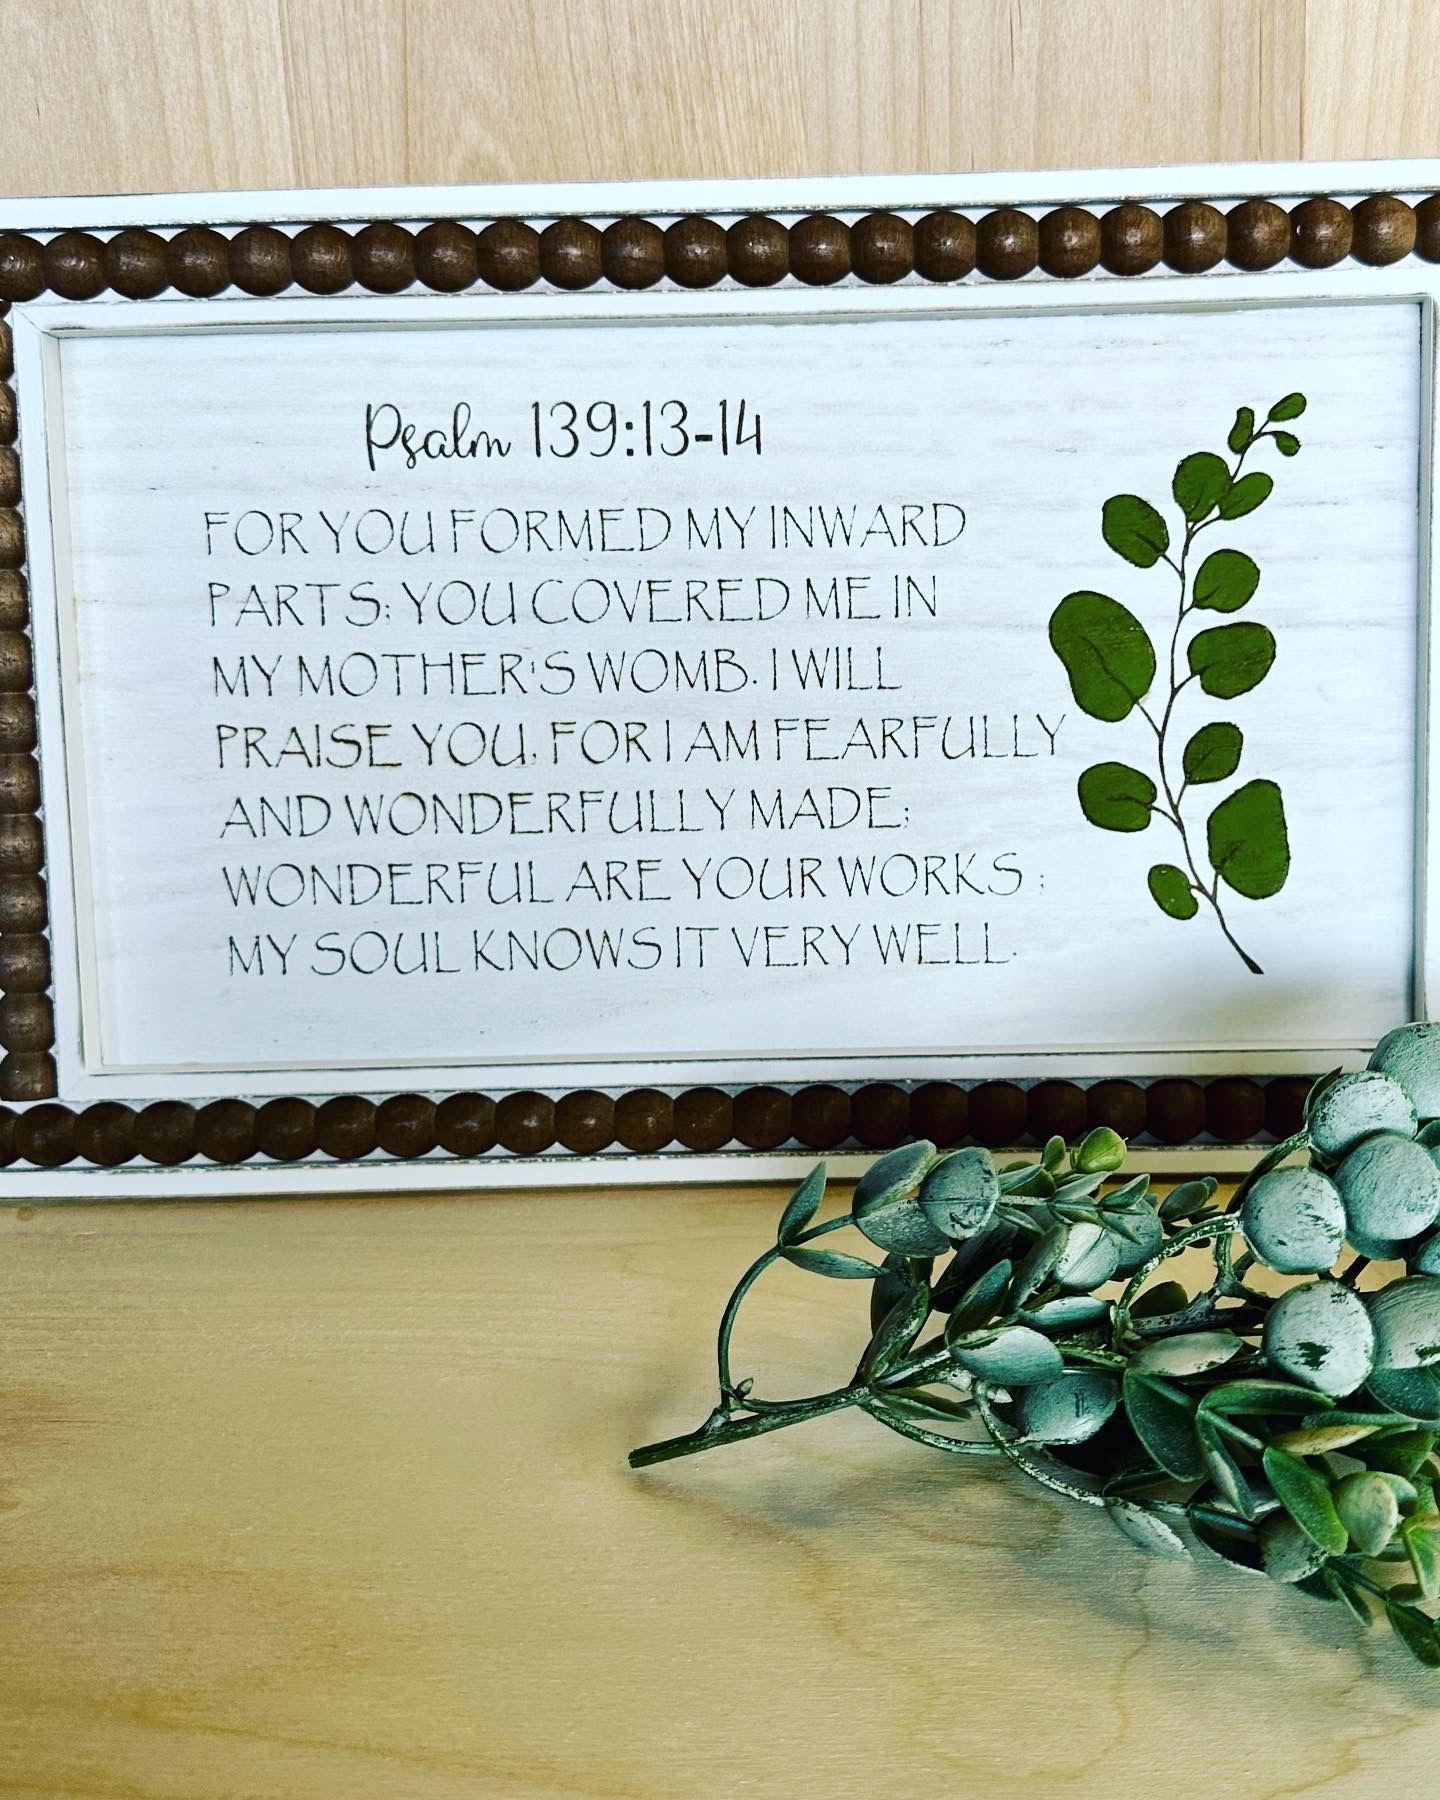 Psalm 139:13-14
FOR YOU FORMED MY INWARD
PARTS; YOU COVERED ME IN
MY MOTHER'S WOMB. I WILL
PRAISE YOU, FOR I AM FEARFULLY
AND WONDERFULLY MADE;
WONDERFUL ARE YOUR WORKS ;
MY SOUL KNOWS IT VERY WELL.